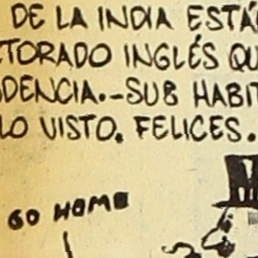 DE LA INDIA ESTÁ
CTORADO INGLÉS QU
DENCIA.-SUB HABIT
LO VISTO. FELICES.
GO HOME